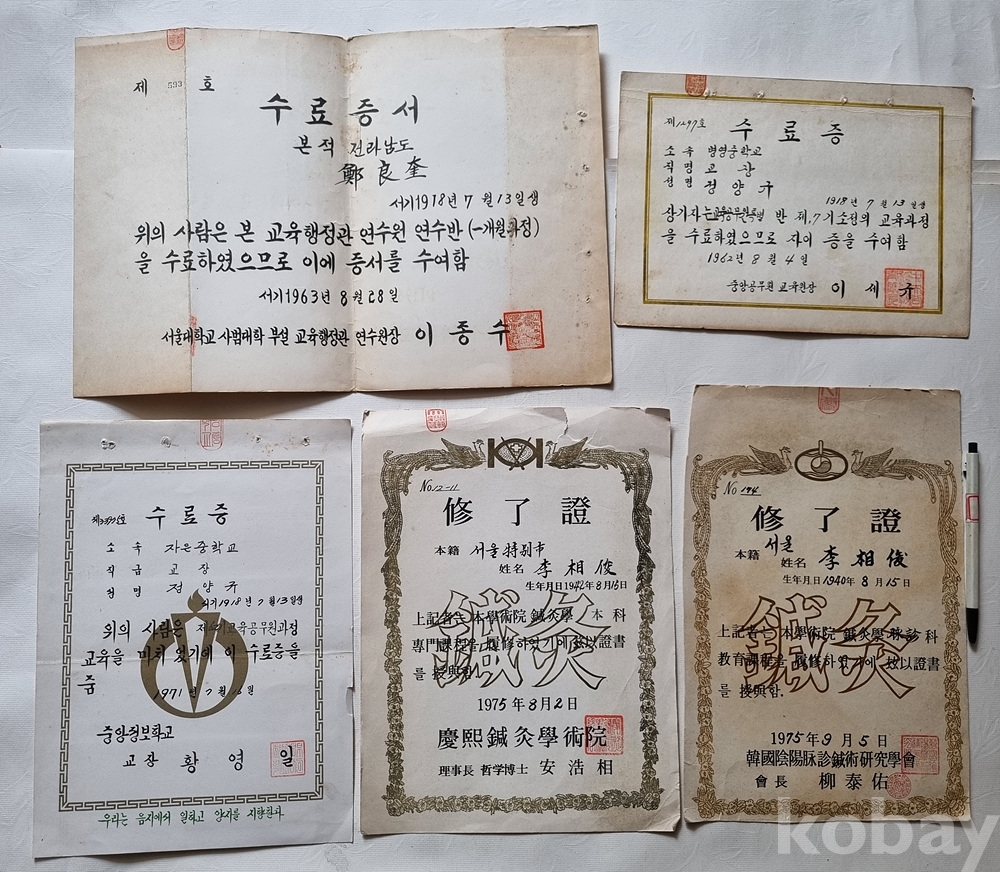 제 533 호
수료증서
본적 전라남도
鄭良奎
서기1918년 7월 13일생
위의 사람은 본 교육행정관 연수원 연수반 (一개월과정)
을 수료하였으므로 이에 증서를 수여함
서기1963년 8월 28일
서울대학교 사범대학 부설 교육행정관 연수원장 이종수
제1297호
수료증
소속 병영중학교
직명 교장
성명 정양규
1918년 7월 13일생
상기자는 교육공무원특별 반 제17기소정의 교육과정
을 수료하였으므로 자이 증을 수여함
1962년 8월 4일
중앙공무원 교육원장 이세규
수료증
소속 자은중학교
직급 교장
성명 정양규
서기1918년 7월 13일생
위의 사람은 교육공무원과정
교육을 마치었기에 이 수료증을
줌
1971년 7월 일
중앙정보학교
교장 황영일
우리는 음지에서 일하고 양지를 지향한다
No.12-11
修了證
本籍 서울特別市
姓名 李相俊
生年月日1942年8月16日
上記者는 本學術院 鍼灸學 本科
專門課程을 履修하였기에 玆以證書
를 授與함
鍼灸
1975年8月2日
慶熙鍼灸學術院
理事長 哲学博士 安浩相
No 194
修了證
本籍 서울
姓名 李相俊
生年月日1940年8月15日
上記者는 本學術院 鍼灸學脉診科
教育課程을 履修하였기에 玆以證書
를 授與함.
鍼灸
1975年9月5日
韓國陰陽脉診鍼術研究學會
會長 柳泰佑
kobay